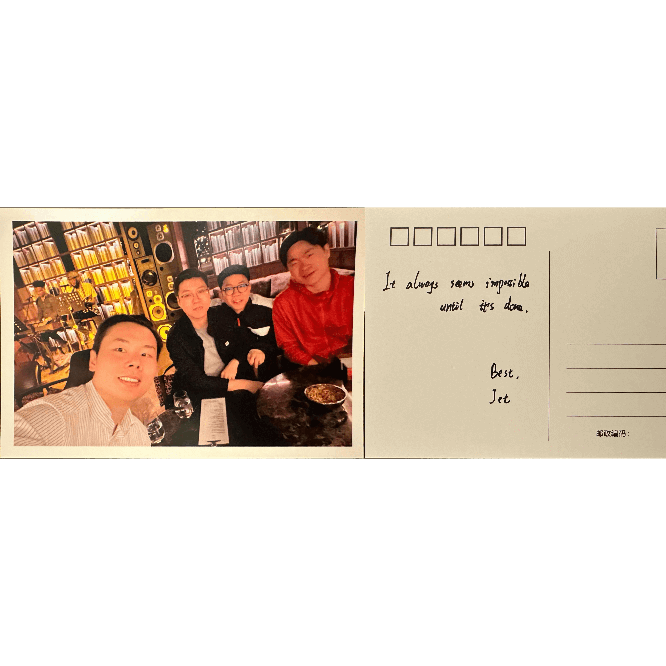 It always seems impossible
until it's done.
Best,
Jet
邮政编码: